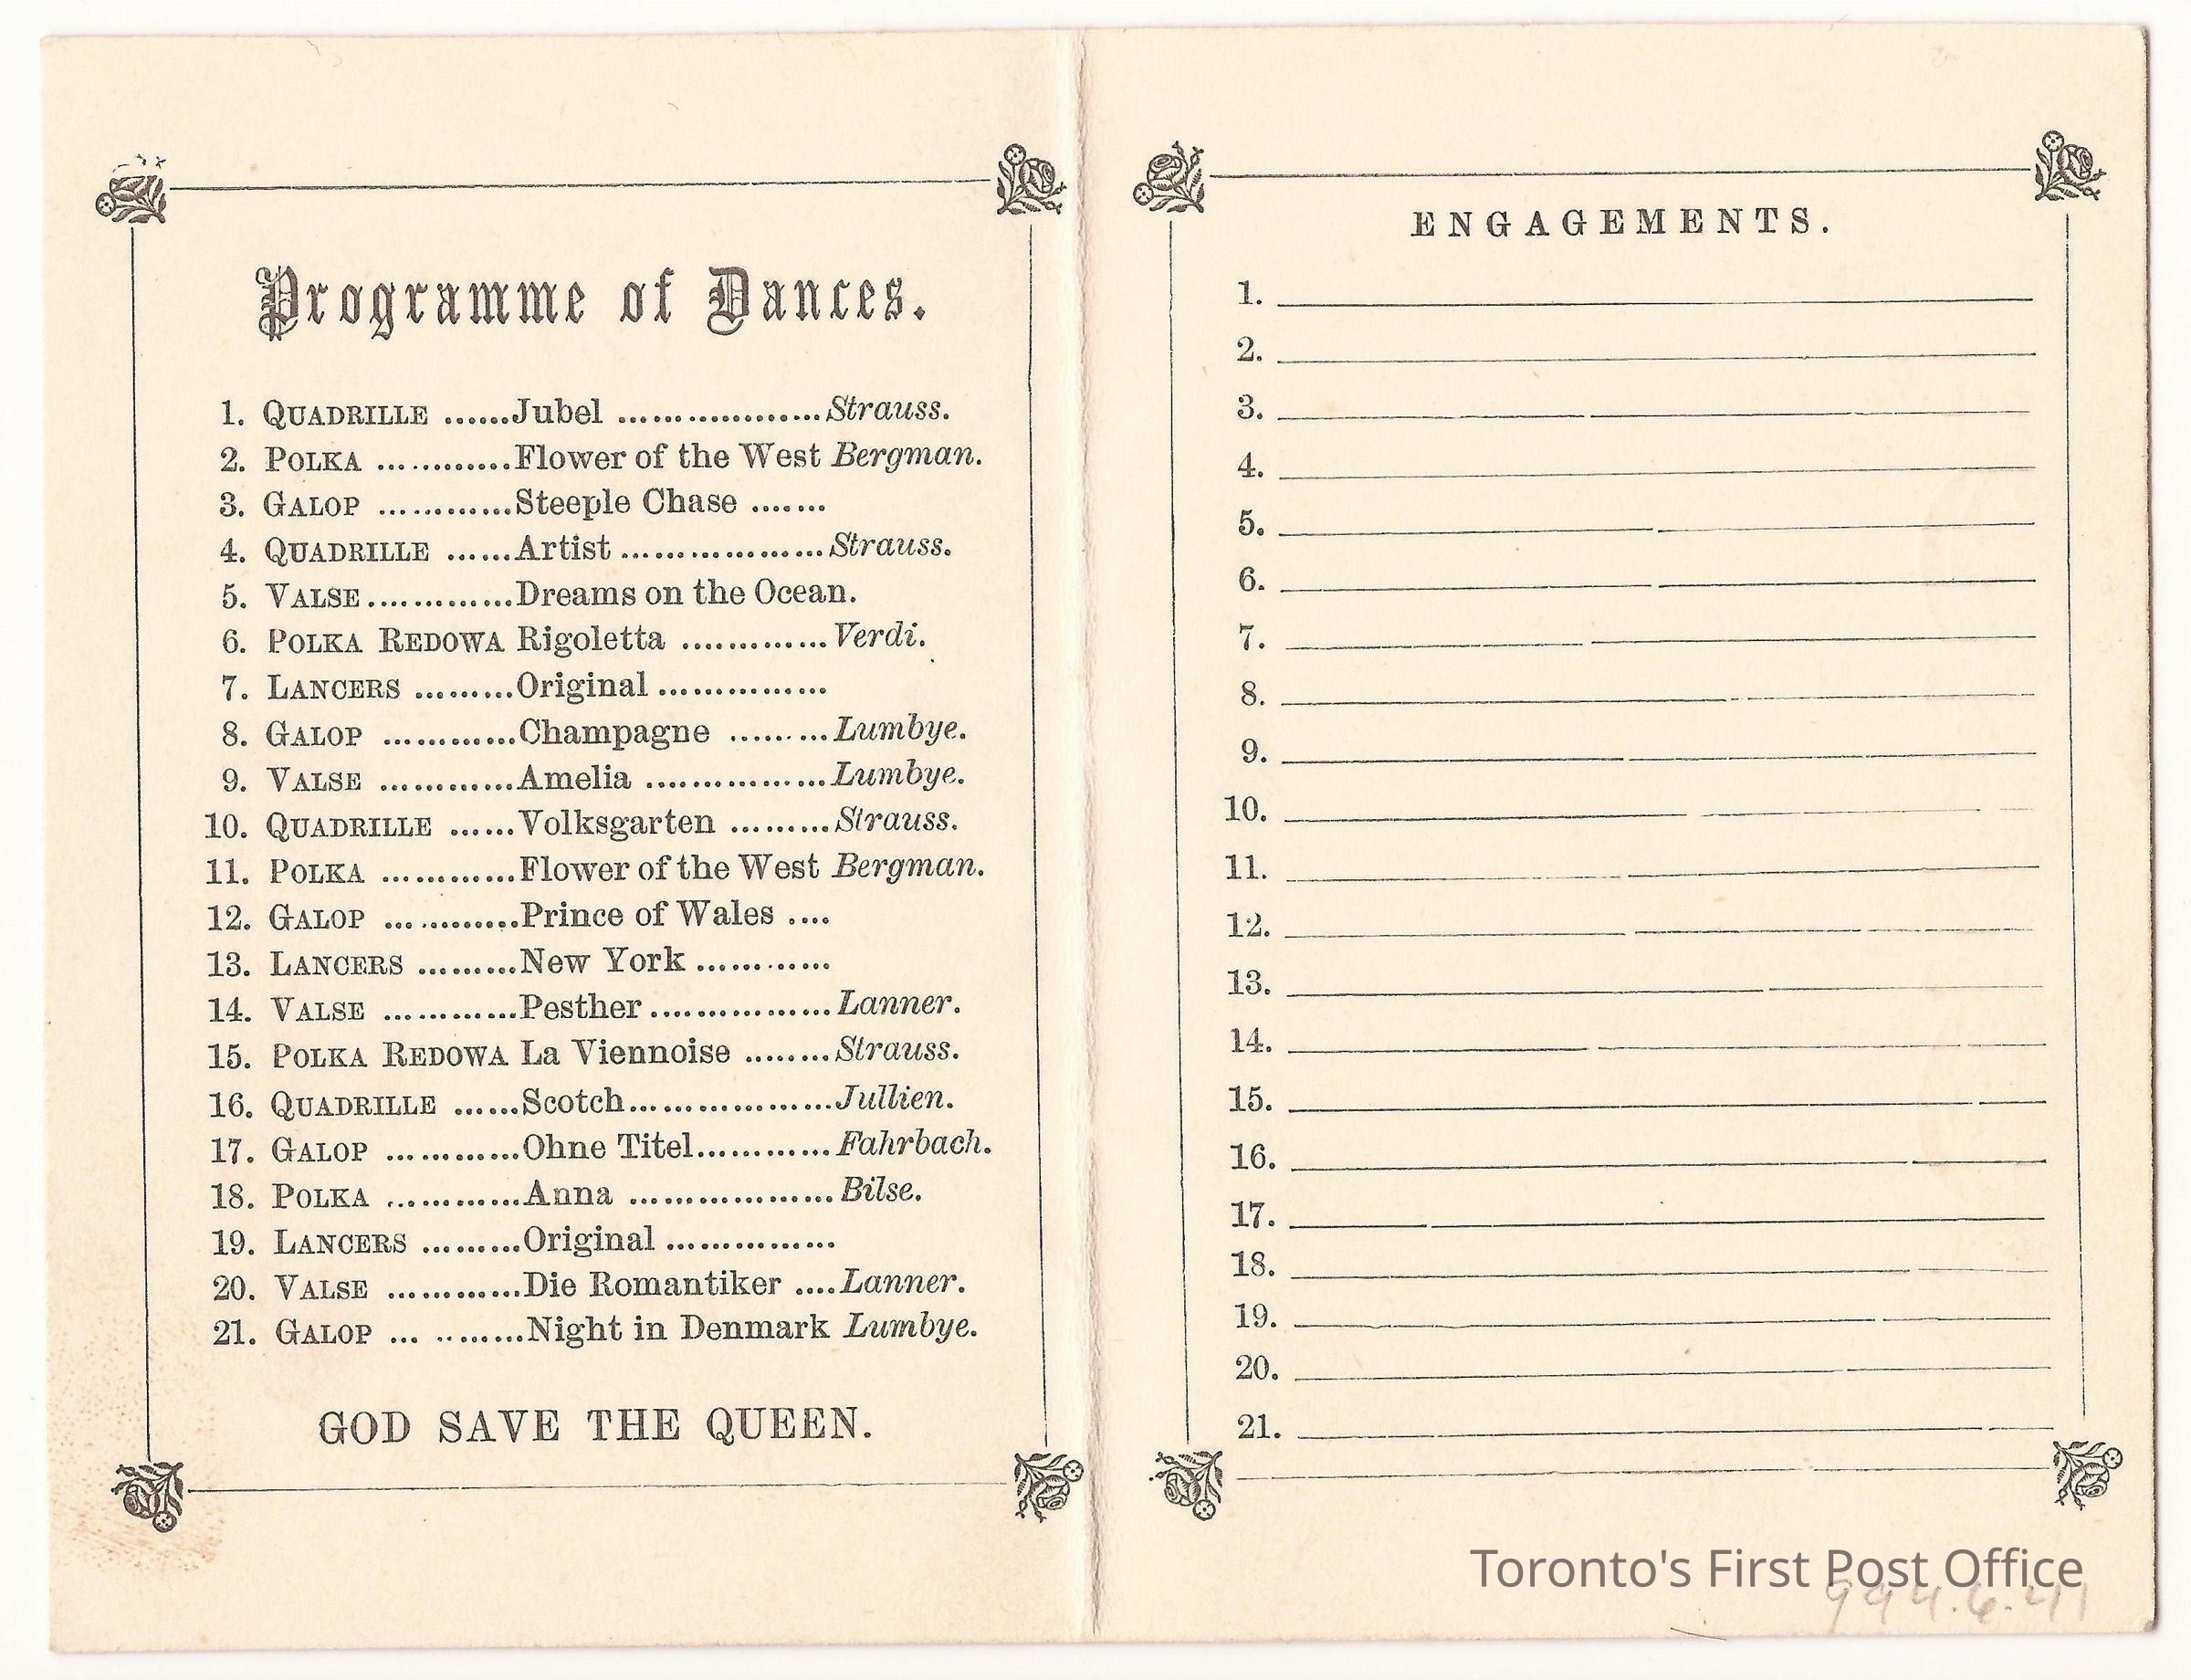 Programme of Dances.
1. QUADRILLE ......Jubel ..................Strauss.
2. POLKA ............Flower of the West Bergman.
3. GALOP ............Steeple Chase .......
4. QUADRILLE ......Artist ..................Strauss.
5. VALSE.............Dreams on the Ocean.
6. POLKA REDOWA Rigoletta .............Verdi.
7. LANCERS .........Original ...............
8. GALOP ............Champagne .........Lumbye.
9. VALSE ............Amelia ................Lumbye.
10. QUADRILLE ......Volksgarten .........Strauss.
11. POLKA ............Flower of the West Bergman.
12. GALOP ............Prince of Wales ....
13. LANCERS .........New York ............
14. VALSE ............Pesther ................Lanner.
15. POLKA REDOWA La Viennoise ........Strauss.
16. QUADRILLE ......Scotch..................Jullien.
17. GALOP ............Ohne Titel............Fahrbach.
18. POLKA ............Anna ..................Bilse.
19. LANCERS .........Original ...............
20. VALSE ............Die Romantiker ....Lanner.
21. GALOP ... ........Night in Denmark Lumbye.
GOD SAVE THE QUEEN.
ENGAGEMENTS.
1.
2.
3.
4.
5.
6.
7.
8.
9.
10.
11.
12.
13.
14.
15.
16.
17.
18.
19.
20.
21.
Toronto's First Post Office
994.6.41